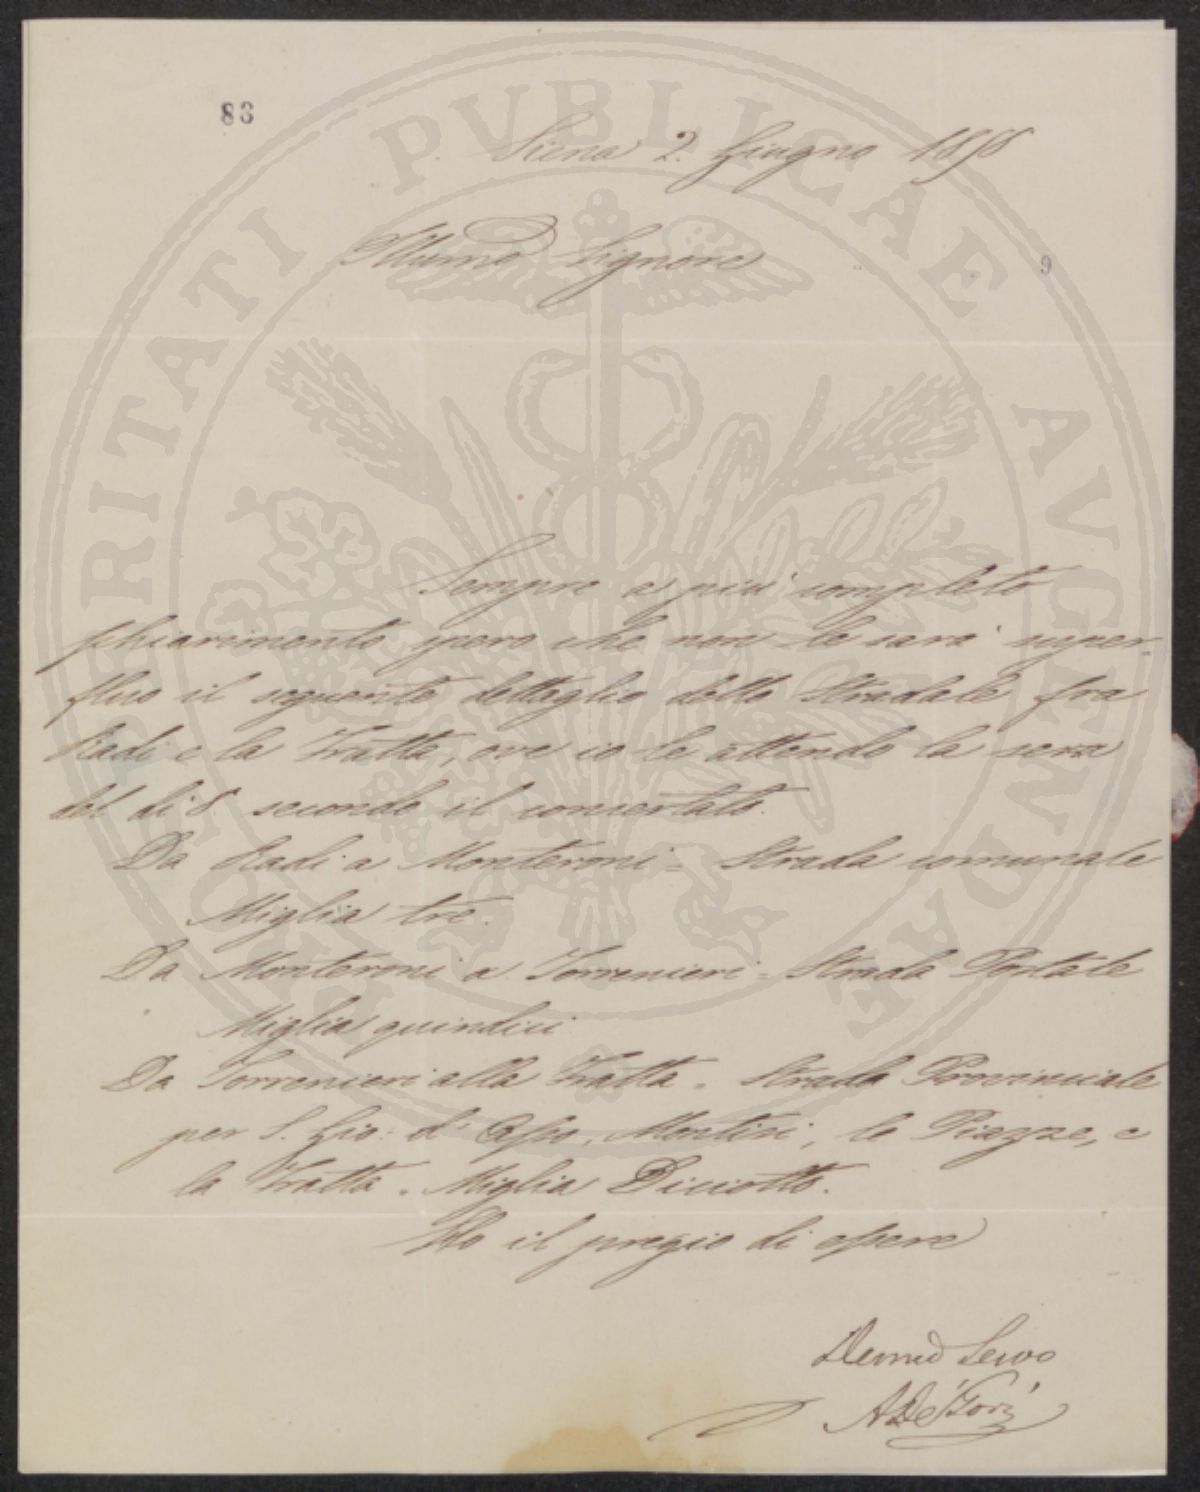 83
Siena 2. Giugno 1858
9
Illumo Signore
Sempre a più completo
schiarimento spero che non le sarà super-
fluo il seguente dettaglio dello Stradale fra
Radi e la Fratta, ove io le attendo la sera
del di 8. secondo il concertato.
Da Radi a Monteroni = Strada comunale
Miglia tre.
Da Monteroni a Torrenieri = Strada Postale
Miglia quindici
Da Torrenieri alla Fratta = Strada Provinciale
per S. Gio: d'Asso, Montisi, le Piazze, e
la Fratta = Miglia Diciotto.
Ho il pregio di essere
Devmo Servo
A De' Gori
PROSPERITATI PVBLICAE AVGENDAE